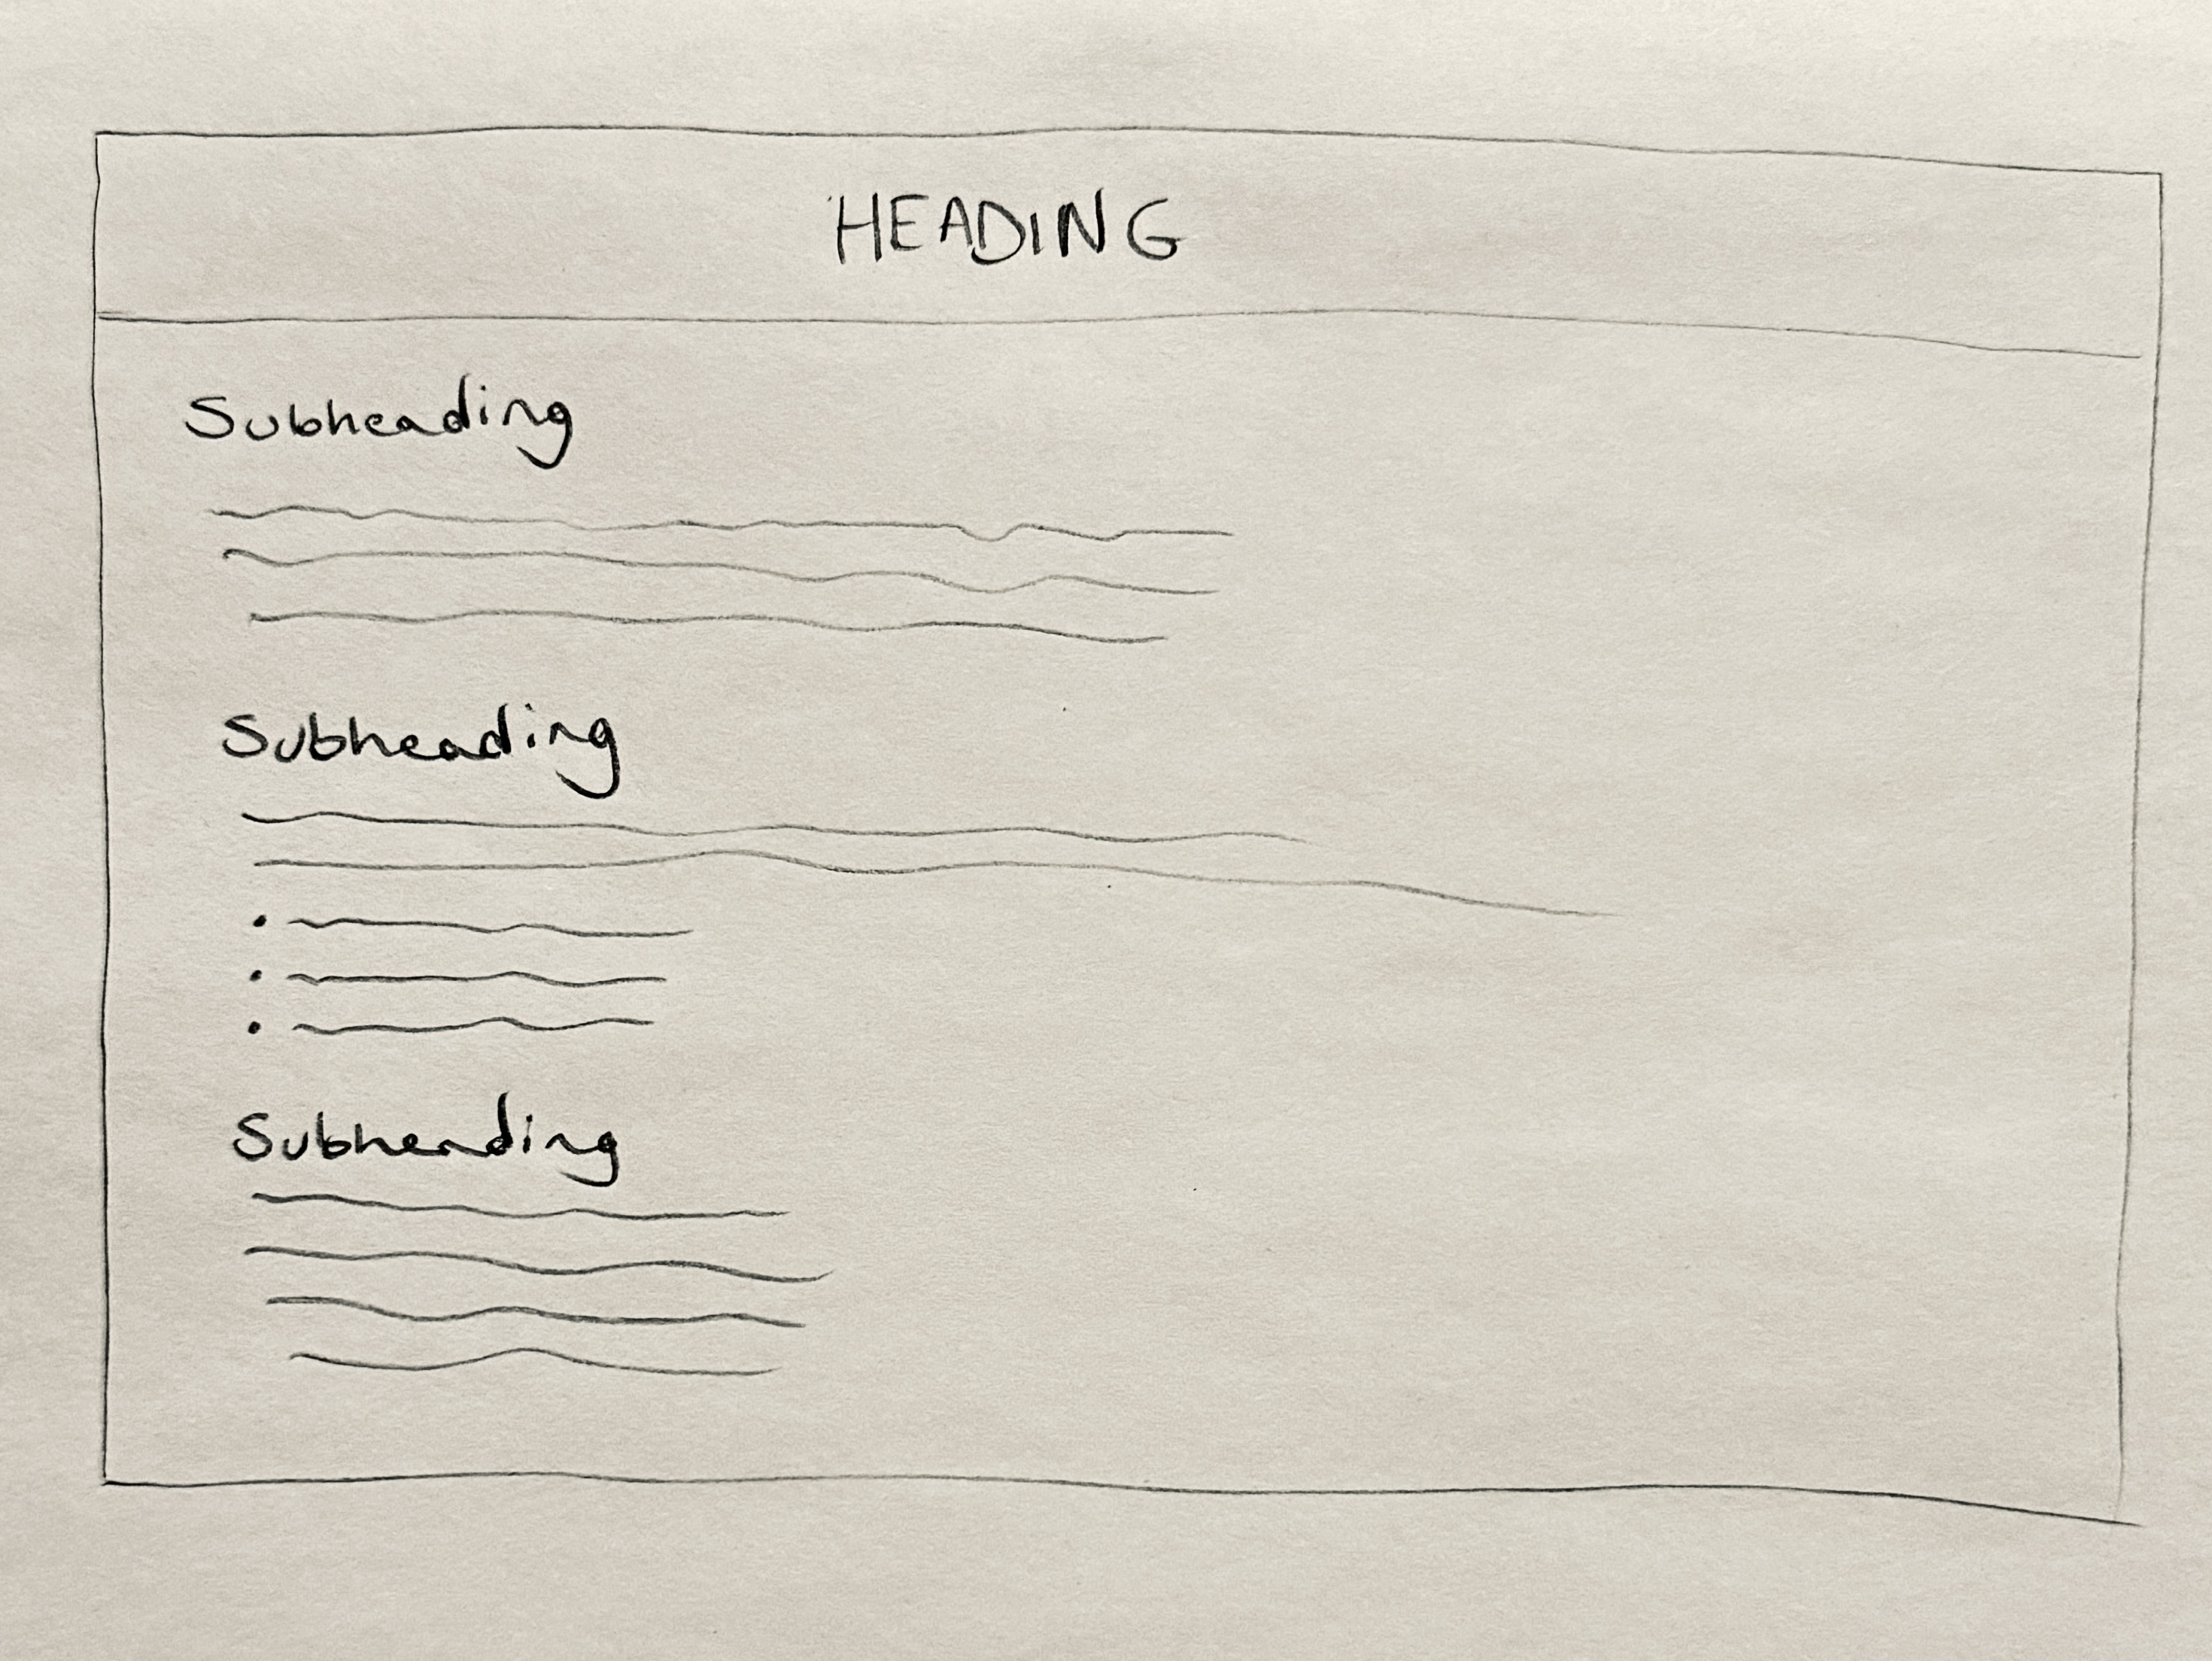 HEADING
Subheading
Subheading
Subheading